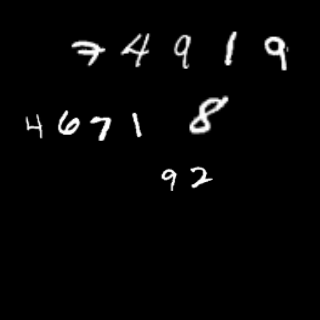 7 4 9 1 9
4 6 7 1 8
9 2